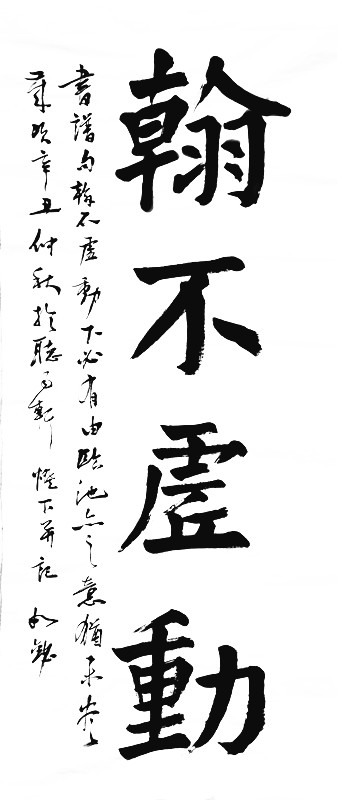 翰不虛動
書譜句翰不虛動下必有由臨池亦之意猶
歲次辛丑仲秋於聽雨軒燈下并記